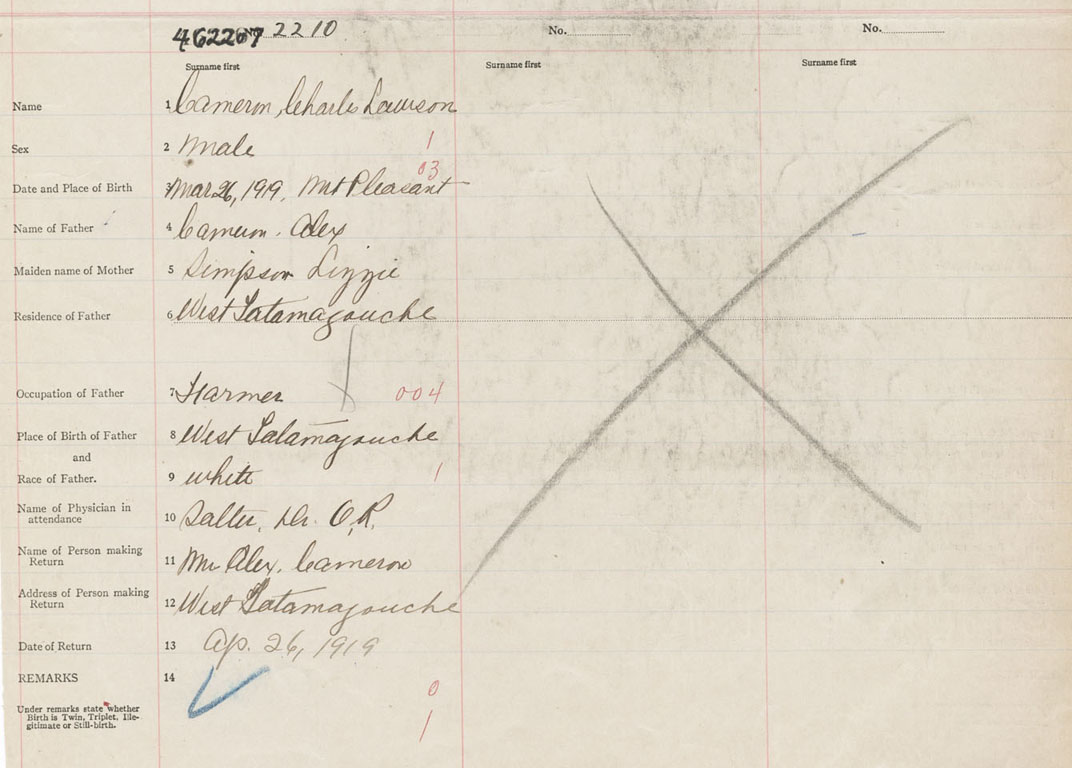 462267 2210 No. No.
Surname first Surname first Surname first
Name 1 Cameron, Charles Lawson
Sex 2 Male 1
03
Date and Place of Birth 3 Mar 26, 1919, Mt Pleasant
Name of Father 4 Cameron. Alex
Maiden name of Mother 5 Simpson Lizzie
Residence of Father 6 West Tatamagouche
Occupation of Father 7 Farmer 004
Place of Birth of Father 8 West Tatamagouche
and
Race of Father. 9 white 1
Name of Physician in
attendance 10 Salter, Dr. O.R.
Name of Person making
Return 11 Mr Alex. Cameron
Address of Person making
Return 12 West Tatamagouche
Date of Return 13 Ap. 26, 1919
REMARKS 14
0
Under remarks state whether
Birth is Twin, Triplet, Ille-
gitimate or Still-birth. 1